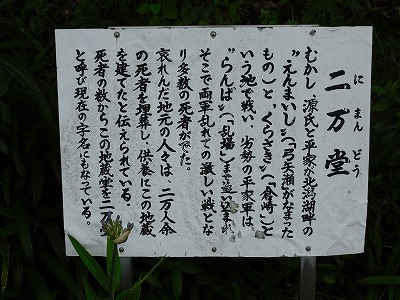 二万堂
にまんどう
むかし 源氏と平家が北潟湖畔の
“えんまいし”(「弓矢瀬」がなまった
もの)と“くらさき”(「倉崎」)と
いう地で戦い、劣勢の平家軍は、
“らんば”(「乱場」)まで追い込まれ
そこで両軍乱れての激しい戦とな
り多数の死者がでた。
哀れんだ地元の人々は、二万人余
の死者を埋葬し、供養にこの地蔵
を建てたと伝えられている。
死者の数からこの地蔵堂を二万
と呼び現在の字名にもなっている。